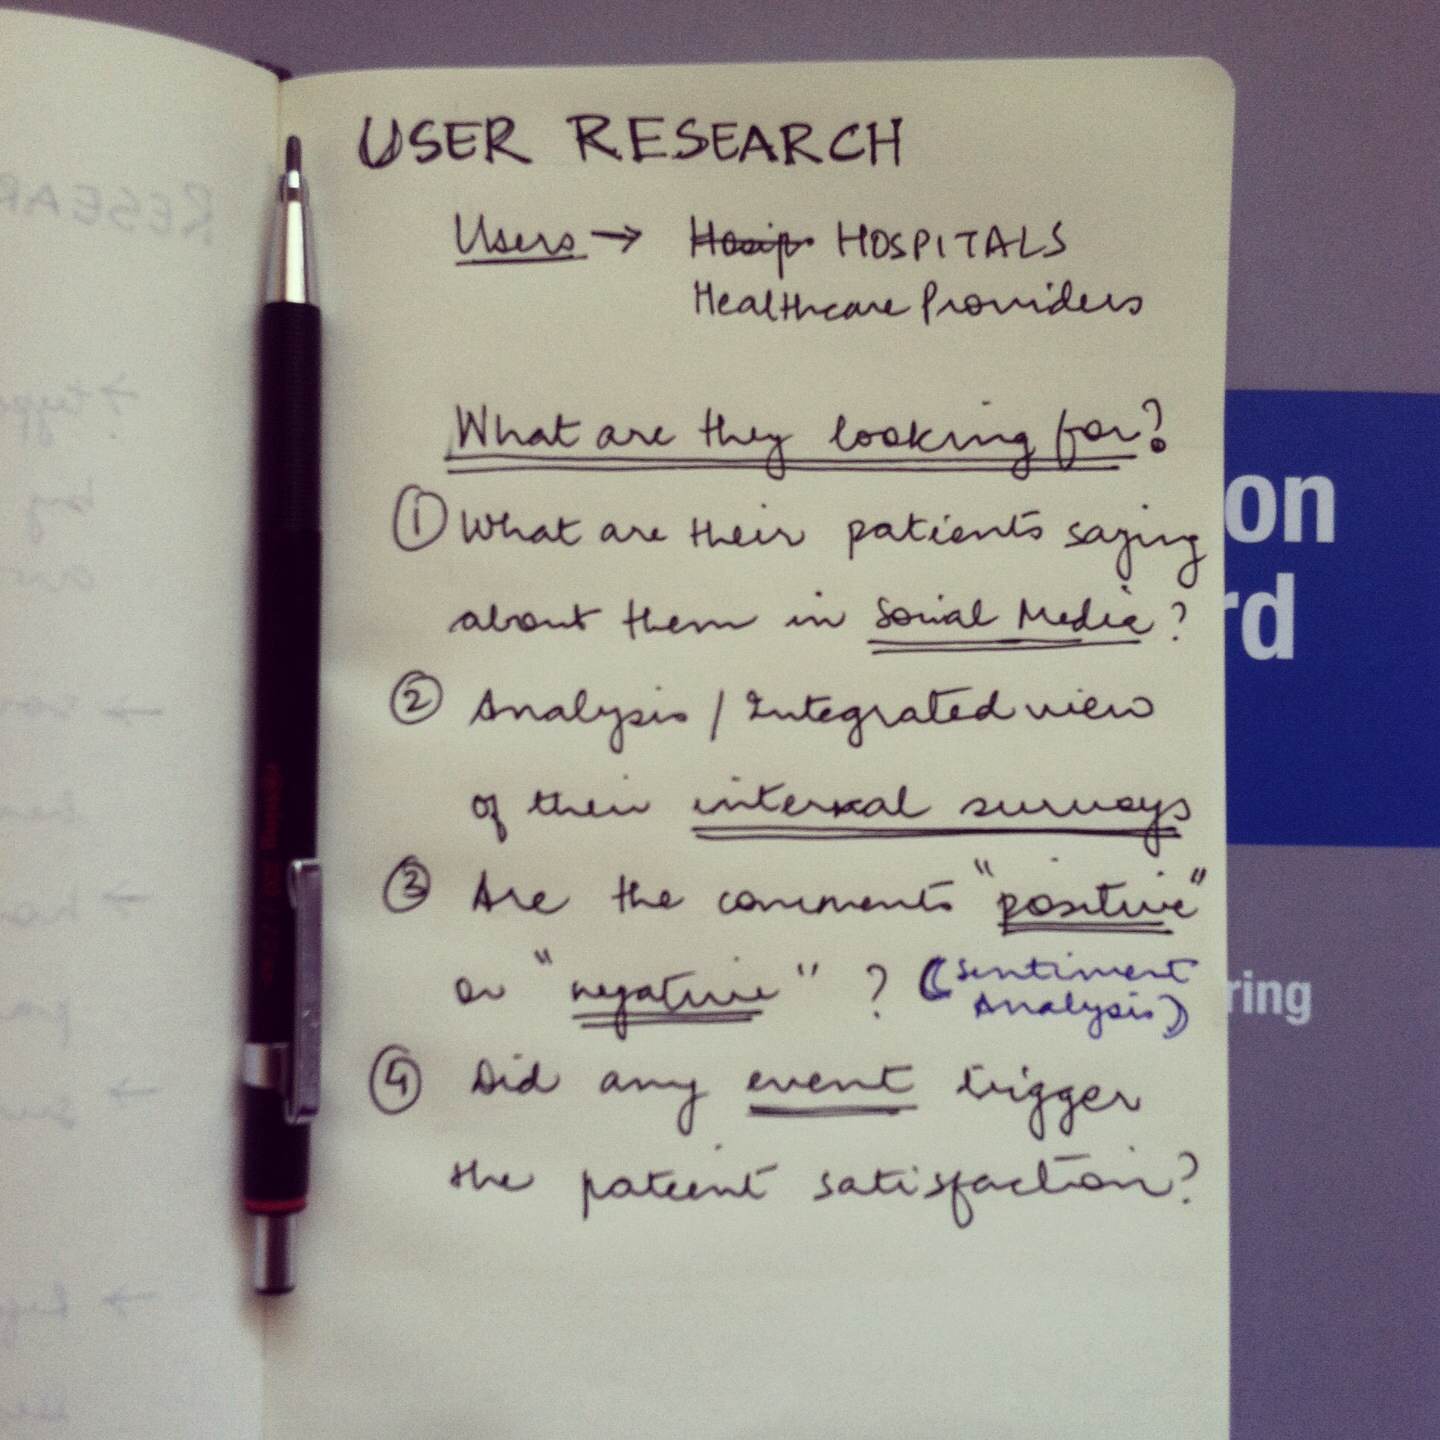 USER RESEARCH
Users → Hosip. HOSPITALS
Healthcare Providers
What are they looking for?
① What are their patients saying
about them in Social Media?
② Analysis / Integrated view
of their internal surveys
③ Are the comments "positive"
or "negative"? (Sentiment
Analysis)
④ Did any event trigger
the patient satisfaction?
on
rd
ring